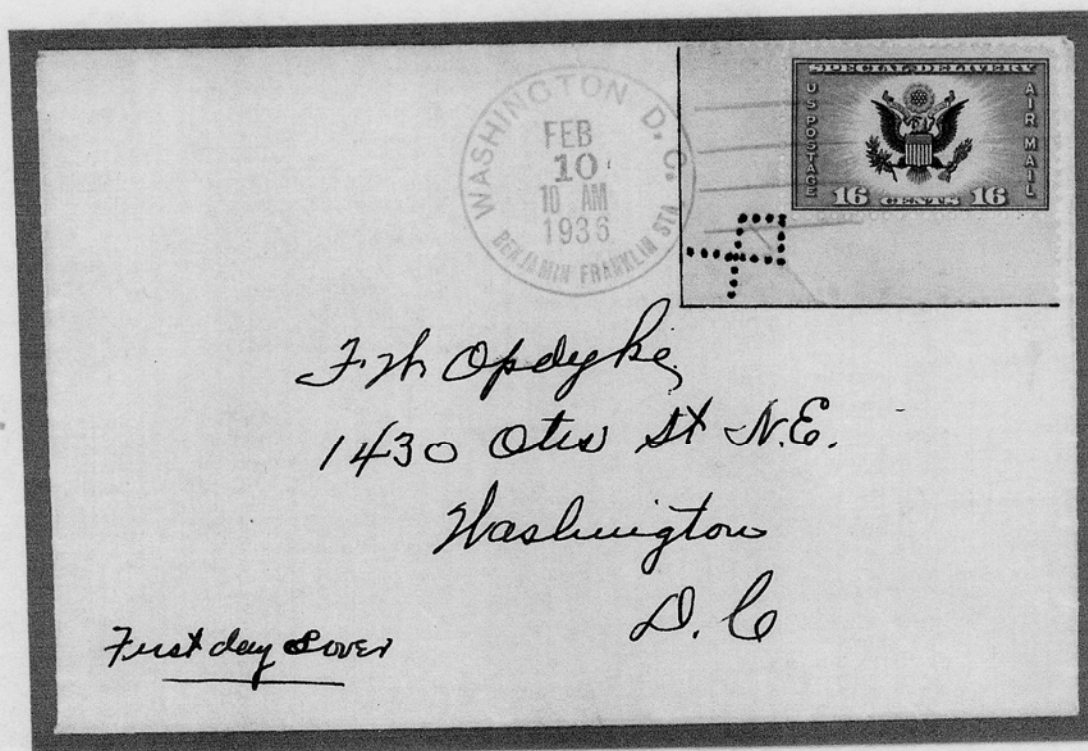 WASHINGTON D. C.
FEB
10
10 AM
1936
BENJAMIN FRANKLIN STA
SPECIAL DELIVERY
US POSTAGE
AIR MAIL
16 CENTS 16
Opdyke
1430 Otis St N.E.
Washington
D. C
First day Cover